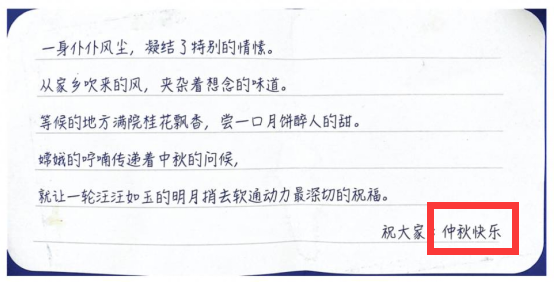 一身仆仆风尘，凝结了特别的情愫。
从家乡吹来的风，夹杂着想念的味道。
等候的地方满院桂花飘香，尝一口月饼醉人的甜。
嫦娥的呼喃传递着中秋的问候，
就让一轮汪汪如玉的明月捎去软通动力最深切的祝福。
祝大家：仲秋快乐